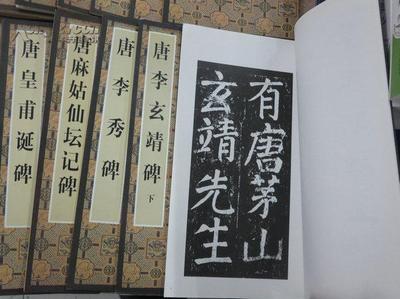 唐皇甫诞碑
唐麻姑仙坛记碑
唐李秀碑
唐李玄靖碑 下
有唐茅山
玄靖先生